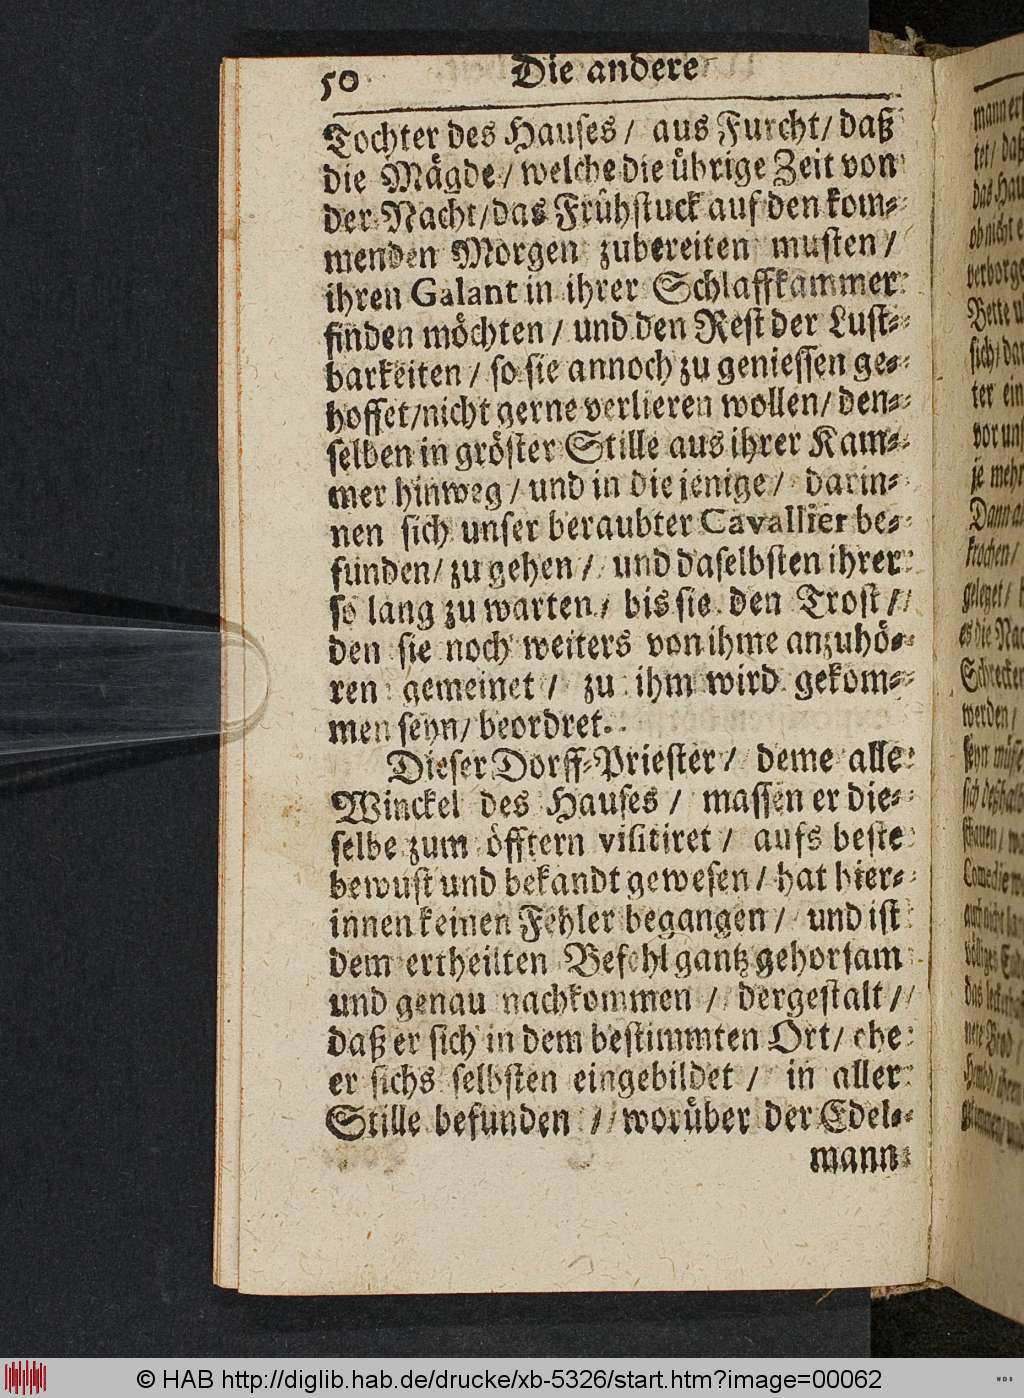 50 Die andere
Tochter des Hauses / aus Furcht / daß
die Mägde / welche die übrige Zeit von
der Nacht / das Frühstuck auf den kom-
menden Morgen zubereiten musten /
ihren Galant in ihrer Schlaffkammer
finden möchten / und den Rest der Lust-
barkeiten / so sie annoch zu geniessen ge-
hoffet / nicht gerne verlieren wollen / den-
selben in gröster Stille aus ihrer Kam-
mer hinweg / und in die jenige / darin-
nen sich unser beraubter Cavallier be-
funden / zu gehen / und daselbsten ihrer
so lang zu warten / bis sie den Trost /
den sie noch weiters von ihme anzuhö-
ren gemeinet / zu ihm wird gekom-
men seyn / beordret.
Dieser Dorff-Priester / deme alle
Winckel des Hauses / massen er die-
selbe zum öfftern visitiret / aufs beste
bewust und bekandt gewesen / hat hier-
innen keinen Fehler begangen / und ist
dem ertheilten Befehl gantz gehorsam
und genau nachkommen / dergestalt /
daß er sich in dem bestimmten Ort / ehe
er sichs selbsten eingebildet / in aller
Stille befunden / worüber der Edel-
mann
© HAB http://diglib.hab.de/drucke/xb-5326/start.htm?image=00062